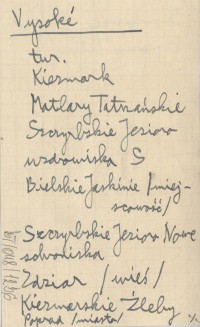 Vysoké
tur.
Kiezmark
Matlary Tatrzańskie
Szczyrbskie Jezioro
uzdrowiska S
Bielskie Jaskinie /miej-
scowość/
Szczyrbskie Jezioro Nowe
Zdziar /wieś/
Kiezmarskie Żleby
Poprad /miasto/